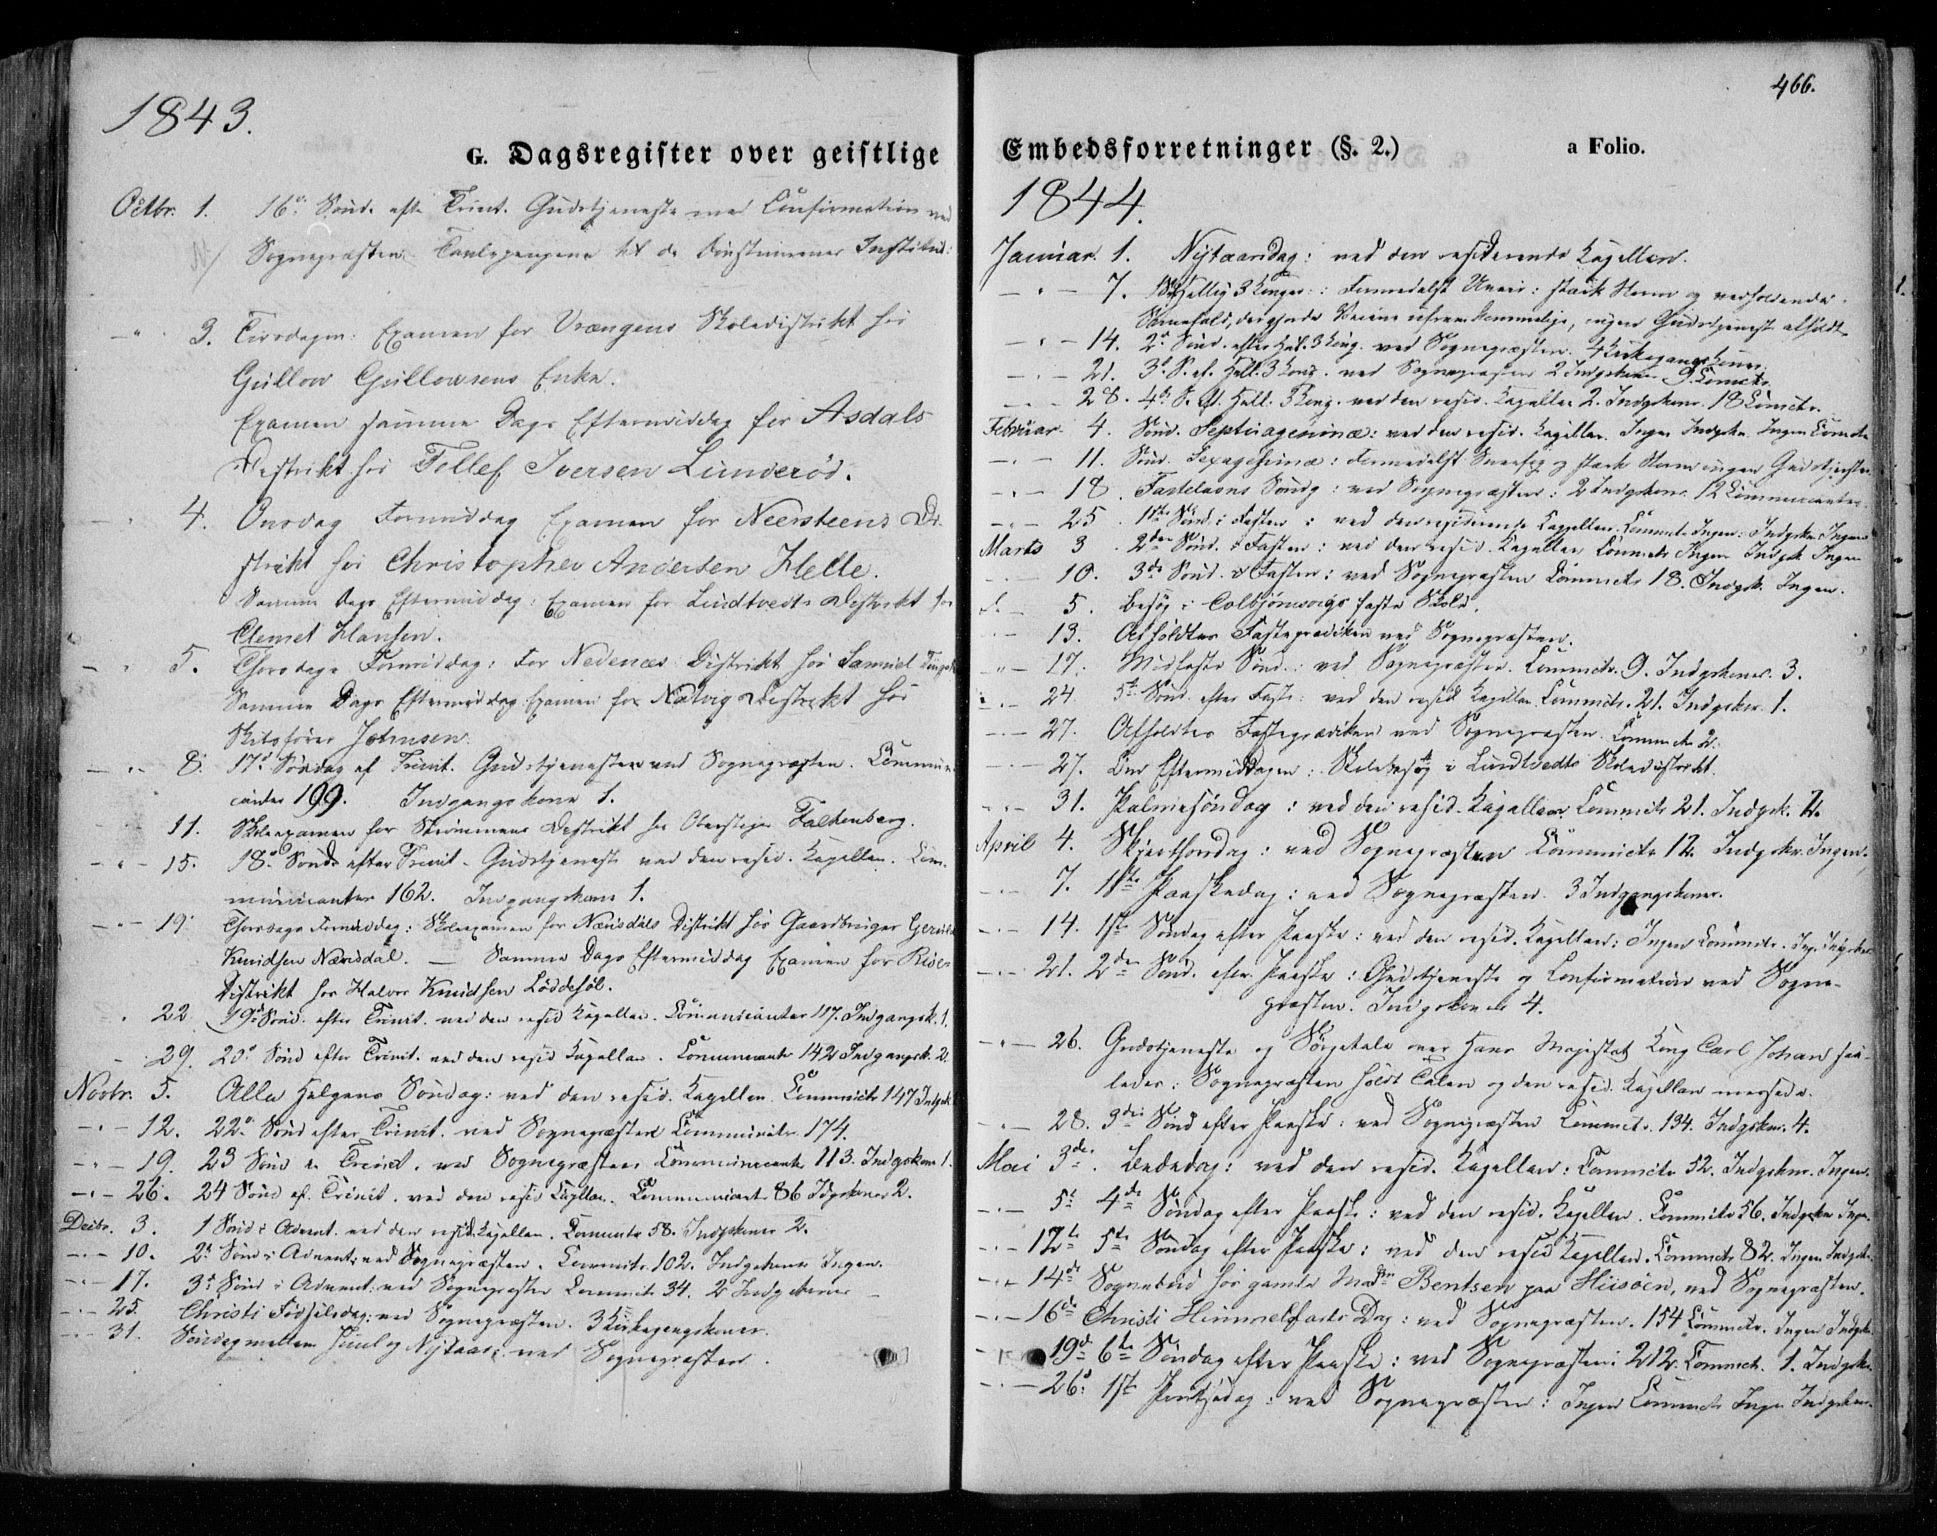 1843.
G. Dagsregister over geistlige
Octbr. 1. 16de Sønd. efter Trinit. Gudstjeneste med Confirmation ved
Sognepræsten. Tavlepengene til de Døvstummes Institut
— " — 3. Tirsdagen: Examen for Vrængens Skoledistrikt hos
Gullow Gullowsens Enke.
Examen samme Dags Eftermiddag for Asdals
Distrikt hos Tellef Iversen Lunderød.
— " — 4. Onsdag Formiddag Examen for Neersteens Di-
strikt hos Christopher Andersen Helle.
Samme Dags Eftermiddag: Examen for Lundtvedts Distrikt hos
Clemet Hansen.
— " — 5. Thorsdags Formiddag: For Nedenæs Distrikt hos Samuel
Samme Dags Eftermiddag Examen for Natvig Distrikt hos
Skibsfører Johnsen.
— " — 8. 17de Søndag ef. Trinit. Gudstjenesten ved Sognepræsten. Commun-
canter 199. Indgangskone 1.
11. Skoleexamen for Strømmens Distrikt hos Falkenberg.
— " — 15. 18de Sønd. efter Trinit. Gudstjeneste ved den resid. Kapellan. Com-
municanter 162. Indgangskone 1.
— " — 19. Thorsdags Formiddag: Skoleexamen for Næsdals Distrikt hos Gaardbruger
Knudsen Næsdal. — Samme Dags Eftermiddag Examen for
Distrikt hos Halvor Knudsen Løddesøl.
" 22 19de Sønd. efter Trinit. ved den resid Kapellan. Communicanter 117. Indgangsk. 1.
— 29. 20de Sønd efter Trinit. ved den resid Kapellan. Communicanter 142 Indgangsk. 2.
Novbr. 5. Alle Helgens Søndag: ved den resid. Kapellan. Commnictr 147 Indgsk.
— " — 12. 22de Sønd efter Trinit. ved Sognepræsten Communictr. 174.
— " — 19. 23 Sønd e. Trinit. ved Sognepræsten Communicanter 113. Indgskone 1.
— " — 26. 24 Sønd ef. Trinit. ved den resid Kapellan. Communicanter 86 Idgskoner 2.
Decbr. 3. 1 Sønd i Advent. ved den resid. Kapellan. Communictr 58. Indgskoner 2.
— " — 10. 2de Sønd i Advent: ved Sognepræsten. Commnictr. 102. Indgskoner Ingen.
— " — 17. 3de Sønd i Advent: ved Sognepræsten Commnictr 34. 2 Indgskoner —
— " — 25. Christi Fødselsdag: ved Sognepræsten. 3 Kirkegangskoner.
— " — 31. Søndag mellem Juul og Nytaar: ved Sognepræsten.
466.
Embedsforretninger (§. 2.) a Folio.
1844.
Januar. 1. Nytaarsdag: ved den residerende Kapellan.
— " — 7. Hellig 3 Konger: Formedelst Uveir: stærk Storm og vedholdende
Sneefald, der gjorde Veiene ufremkommelige, ingen Gudstjeneste afholdt
— " — 14. 2de Sønd. efter Hel. 3 Kong. ved Sognepræsten. 4 Kirkegangskoner.
— " — 21. 3de S. ef. Hell. 3 Kong. ved Sognepræsten 2 Indgskoner. 9 Comctr.
— " — 28. 4de S. ef. Hell. 3 Kong. ved den resid. Kapellan 2. Indgskoner. 18 Comctr.
Februar 4. Sønd. Septuagesimæ: ved den resid. Kapellan. Ingen Indgsk. Ingen Comctr
— " — 11. Sønd. Sexagesimæ: Formedelst Sneefog og stærk Storm ingen Gudstjeneste.
— " — 18. Fastelavns Søndg: ved Sognepræsten: 2 Indgskoner. 12 Communicanter.
— " — 25. 1ste Sønd. i Fasten: ved den residerende Kapellan. Commct. Ingen. Indgsk. Ingen
Marts 3. 2den Sønd. i Fasten: ved den resid. Kapellan Commctr Ingen Indgsk Ingen
— " — 10. 3de Sønd. i Fasten: ved Sognepræsten Commctr 18. Indgsk. Ingen.
5. Besøg i Colbjørnsvigs faste Skole.
— " — 13. Afholdtes Fasteprædiken ved Sognepræsten.
— " — 17. Midfaste Sønd.: ved Sognepræsten. Commctr. 9. Indgskoner. 3.
— " — 24 5te Sønd. efter Faste: ved den resid Kapellan Commctr. 21. Indgskr. 1.
— " — 27. Afholdtes Fasteprædiken ved Sognepræsten. Commctr 2.
— " — 27. Om Eftermiddagen: Skolebesøg i Lundtvedts Skoledistrikt.
— " — 31. Palmesøndag: ved den resid. Kapellan. Commctr 21. Indgsk. 2.
April 4. Skjertorsdag: ved Sognepræsten Commnictr 12. Indgskr. Ingen.
— " — 7. 1ste Paaskedag: ved Sognepræsten. 3 Indgangskoner.
— " — 14. 1ste Søndag efter Paaske: ved den resid. Kapellan: Ingen Commctr. Ing. Indgsk.
— " — 21. 2den Sønd. efter Paaske: Gudstjeneste og Confirmation ved Sogne-
præsten. Indgskoner 4.
— " — 26. Gudstjeneste og Sørgetale over Hans Majestæt Kong Carl Johan
Sognepræsten holdt Talen og den resid. Kapellan messede.
— " — 28. 3die Sønd efter Paaske: ved Sognepræsten Commctr. 134. Indgskoner. 4.
Mai 3die. Bededag: ved den resid. Kapellan: Commctr 52. Indgskoner. Ingen.
— " — 5te 4de Søndag efter Paaske: ved den resid. Kapellan. Commctr 56. Indgskr Ingen.
— " — 12te 5te Søndag efter Paaske: ved den resid Kapellan. Commctr 82. Ingen Indgsk.
— " — 14de Sognebud hos gamle Madm Bentsen paa Hiisøen, ved Sognepræsten.
— " — 16de Christi Himmelfarts Dag: ved Sognepræsten. 154 Commctr. Ingen Indgsk.
— 19de 6te Søndag efter Paaske: ved Sognepræsten: 212 Commctr. 1. Indgsk.
— " — 26de 1ste Pintsedag: ved Sognepræsten: Ingen Commctr Ingen Indgskoner.